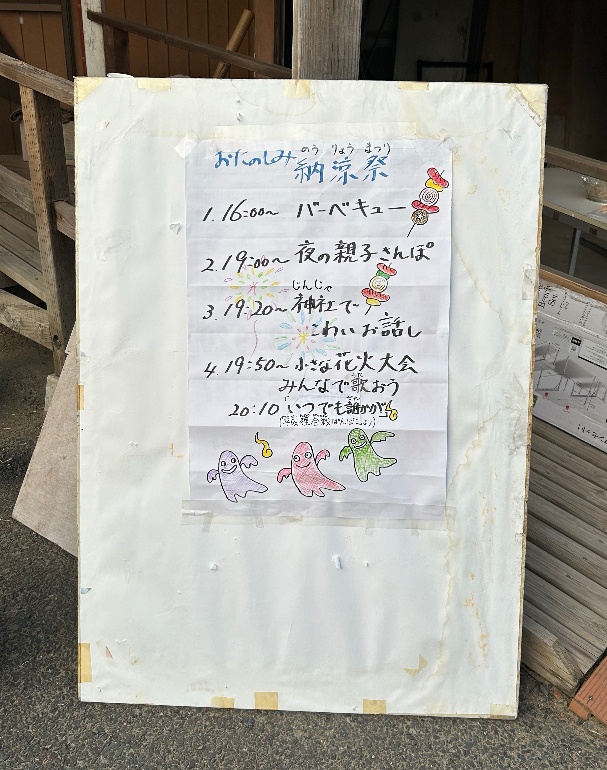 のう りょう まつり
おたのしみ 納涼祭
1. 16:00～ バーベキュー
2. 19:00～ 夜の親子さんぽ
じんじゃ
3. 19:20～ 神社で
こわいお話し
4. 19:50～ 小さな花火大会
みんなで歌おう
20:10 いつでも誰かが